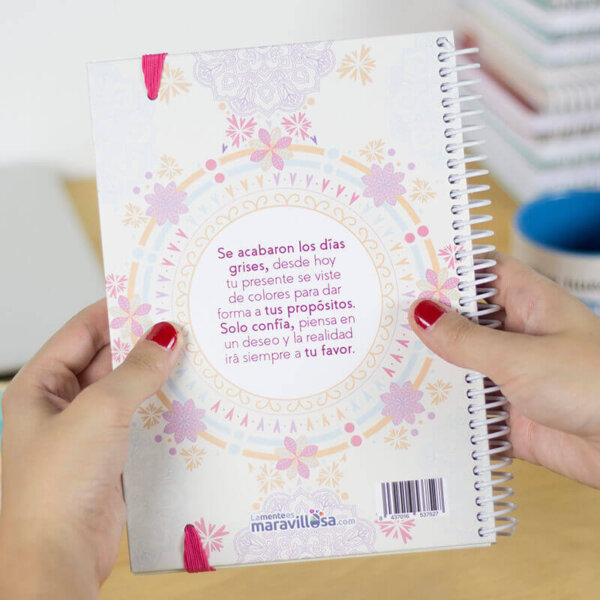 Se acabaron los días
grises, desde hoy
tu presente se viste
de colores para dar
forma a tus propósitos.
Solo confía, piensa en
un deseo y la realidad
irá siempre a tu favor.
Lamentees
maravillosa.com
8 437016 537527